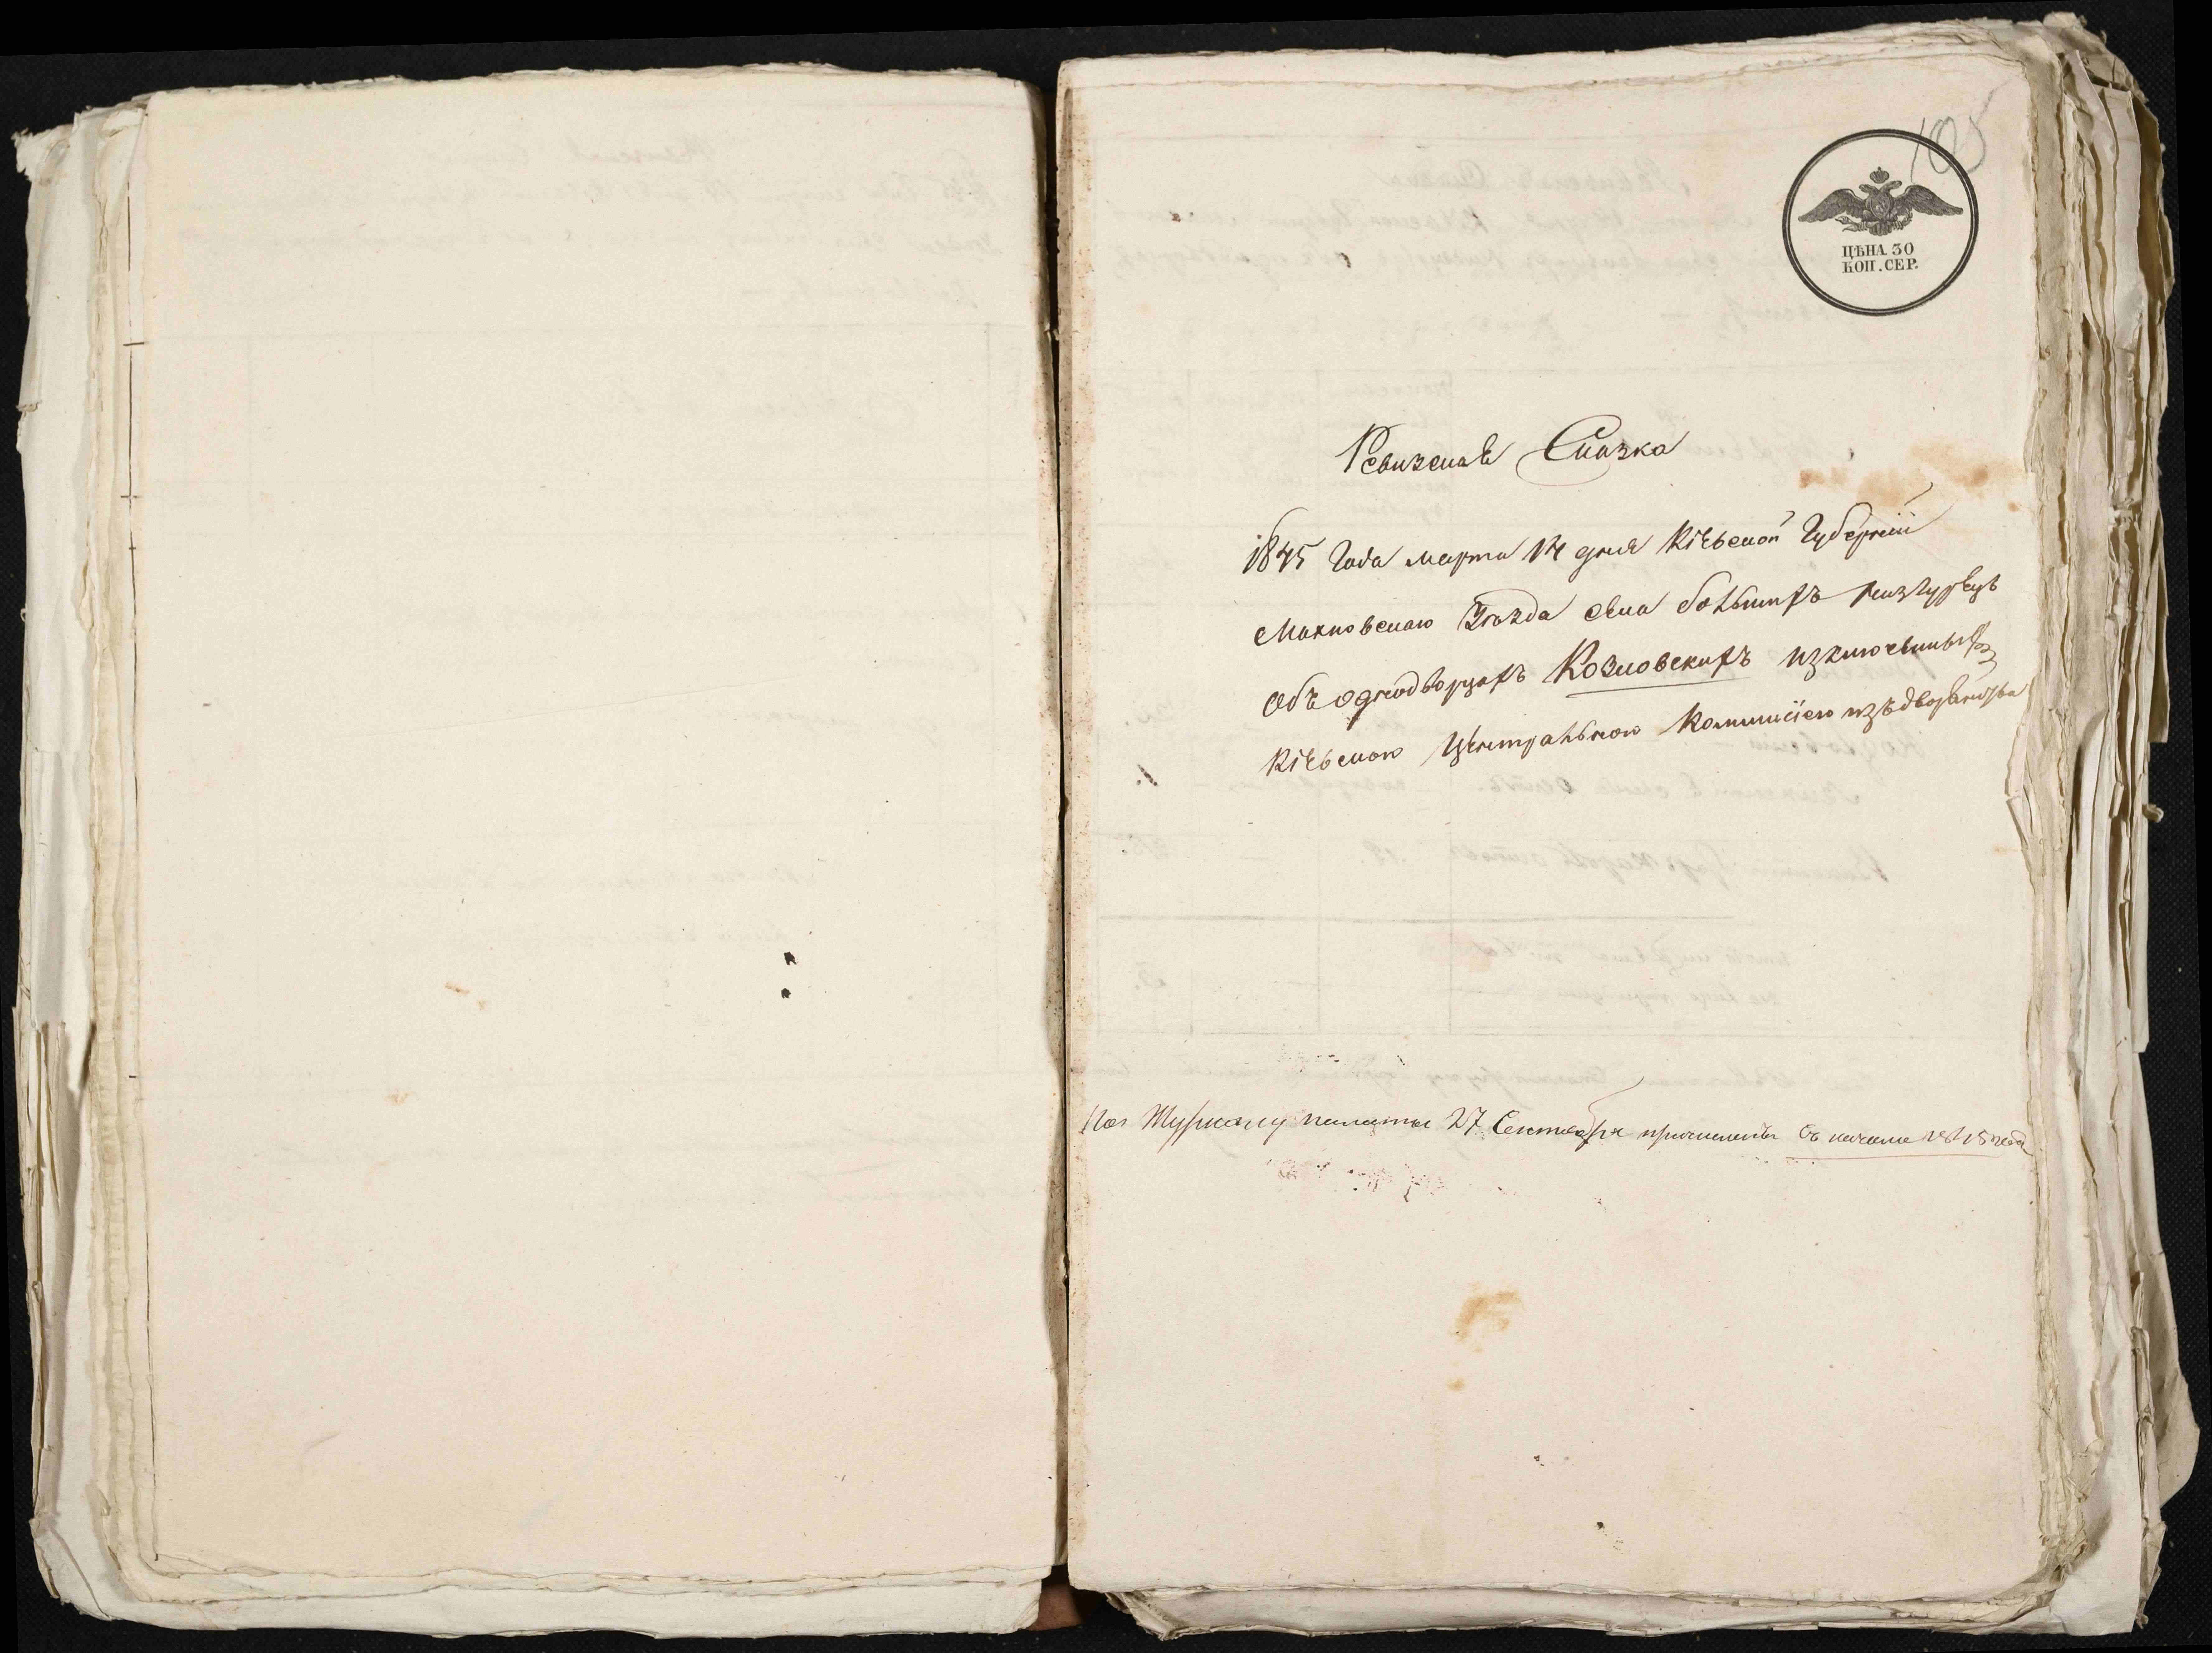 105
ЦѢНА 30
КОП. СЕР.
Ревизская Сказка
1845 Года марта 14 дня Кіевской Губерніи
Махновскаго Уѣзда села большихъ низгурецъ
объ однодворцахъ Козловскихъ изключенныхъ
Кіевскою Центральною Коммисіею изъ дворянства
По Журналу палаты 27 Сентября причислены съ начала 1845 года